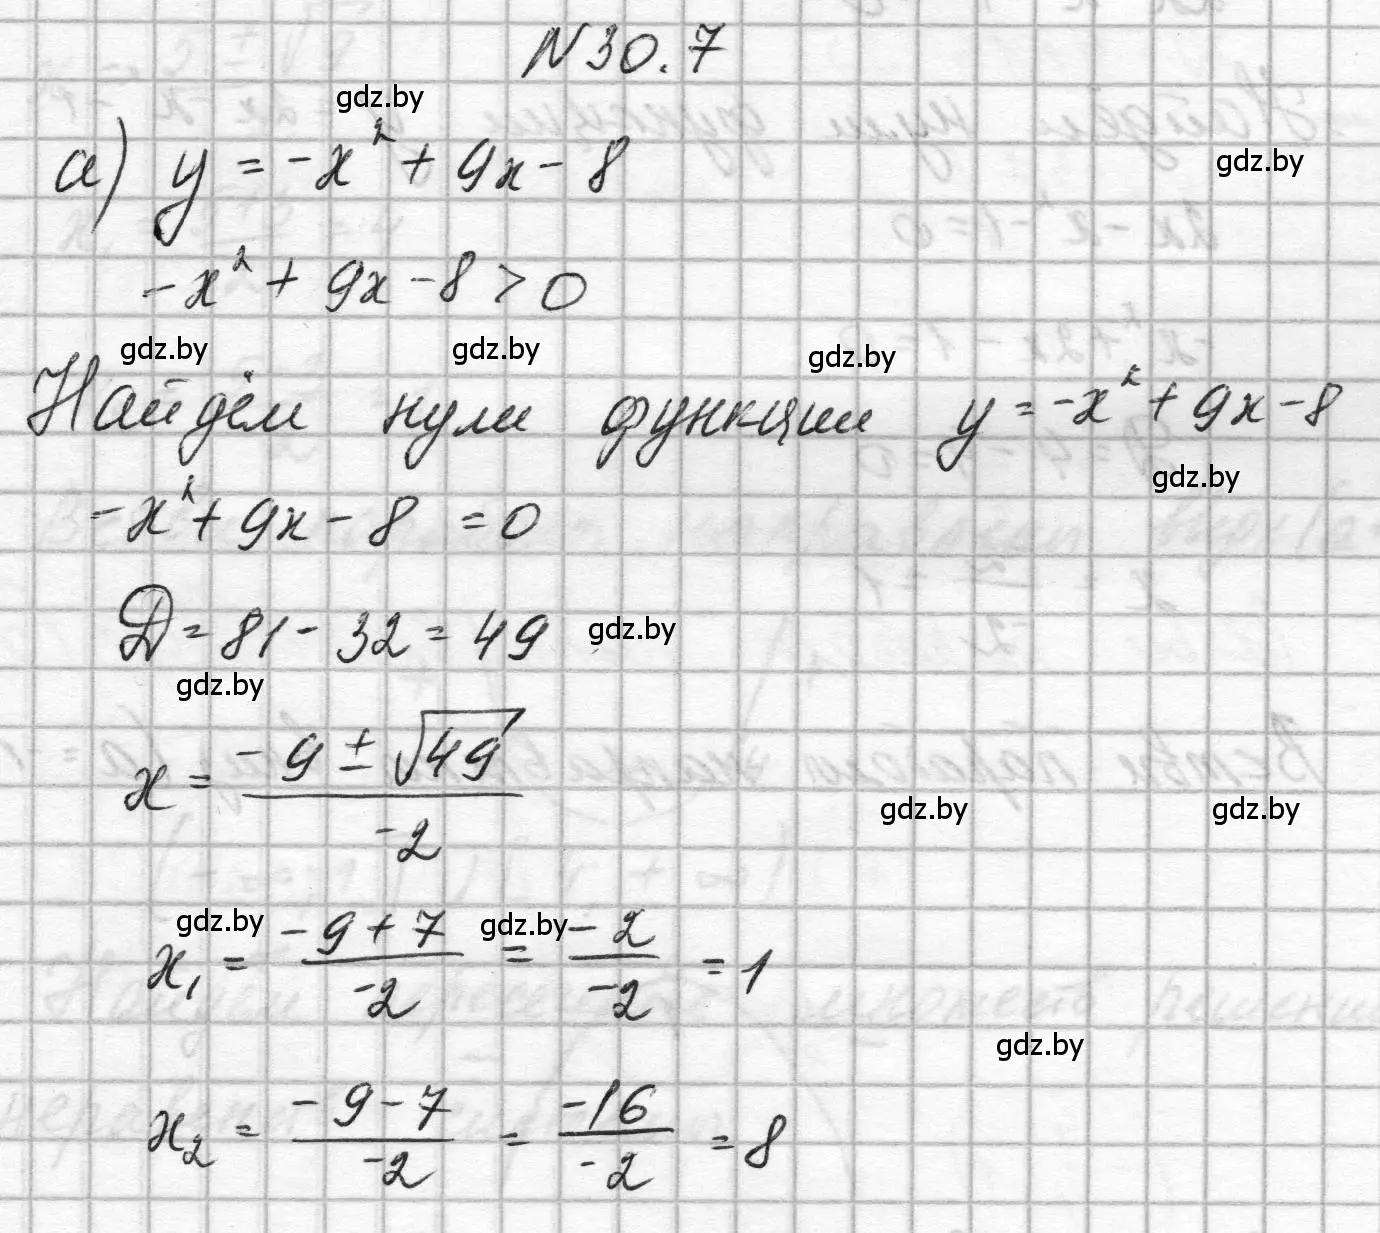 N 30.7
gdz.by
а) y = -x² + 9x - 8
gdz.by
-x² + 9x - 8 > 0
gdz.by gdz.by gdz.by
Найдём нули функции y = -x² + 9x - 8
gdz.by
-x² + 9x - 8 = 0
D = 81 - 32 = 49 gdz.by
gdz.by
x = (-9 ± √49) / -2
gdz.by gdz.by
gdz.by gdz.by
x₁ = (-9 + 7) / -2 = -2 / -2 = 1
gdz.by
x₂ = (-9 - 7) / -2 = -16 / -2 = 8